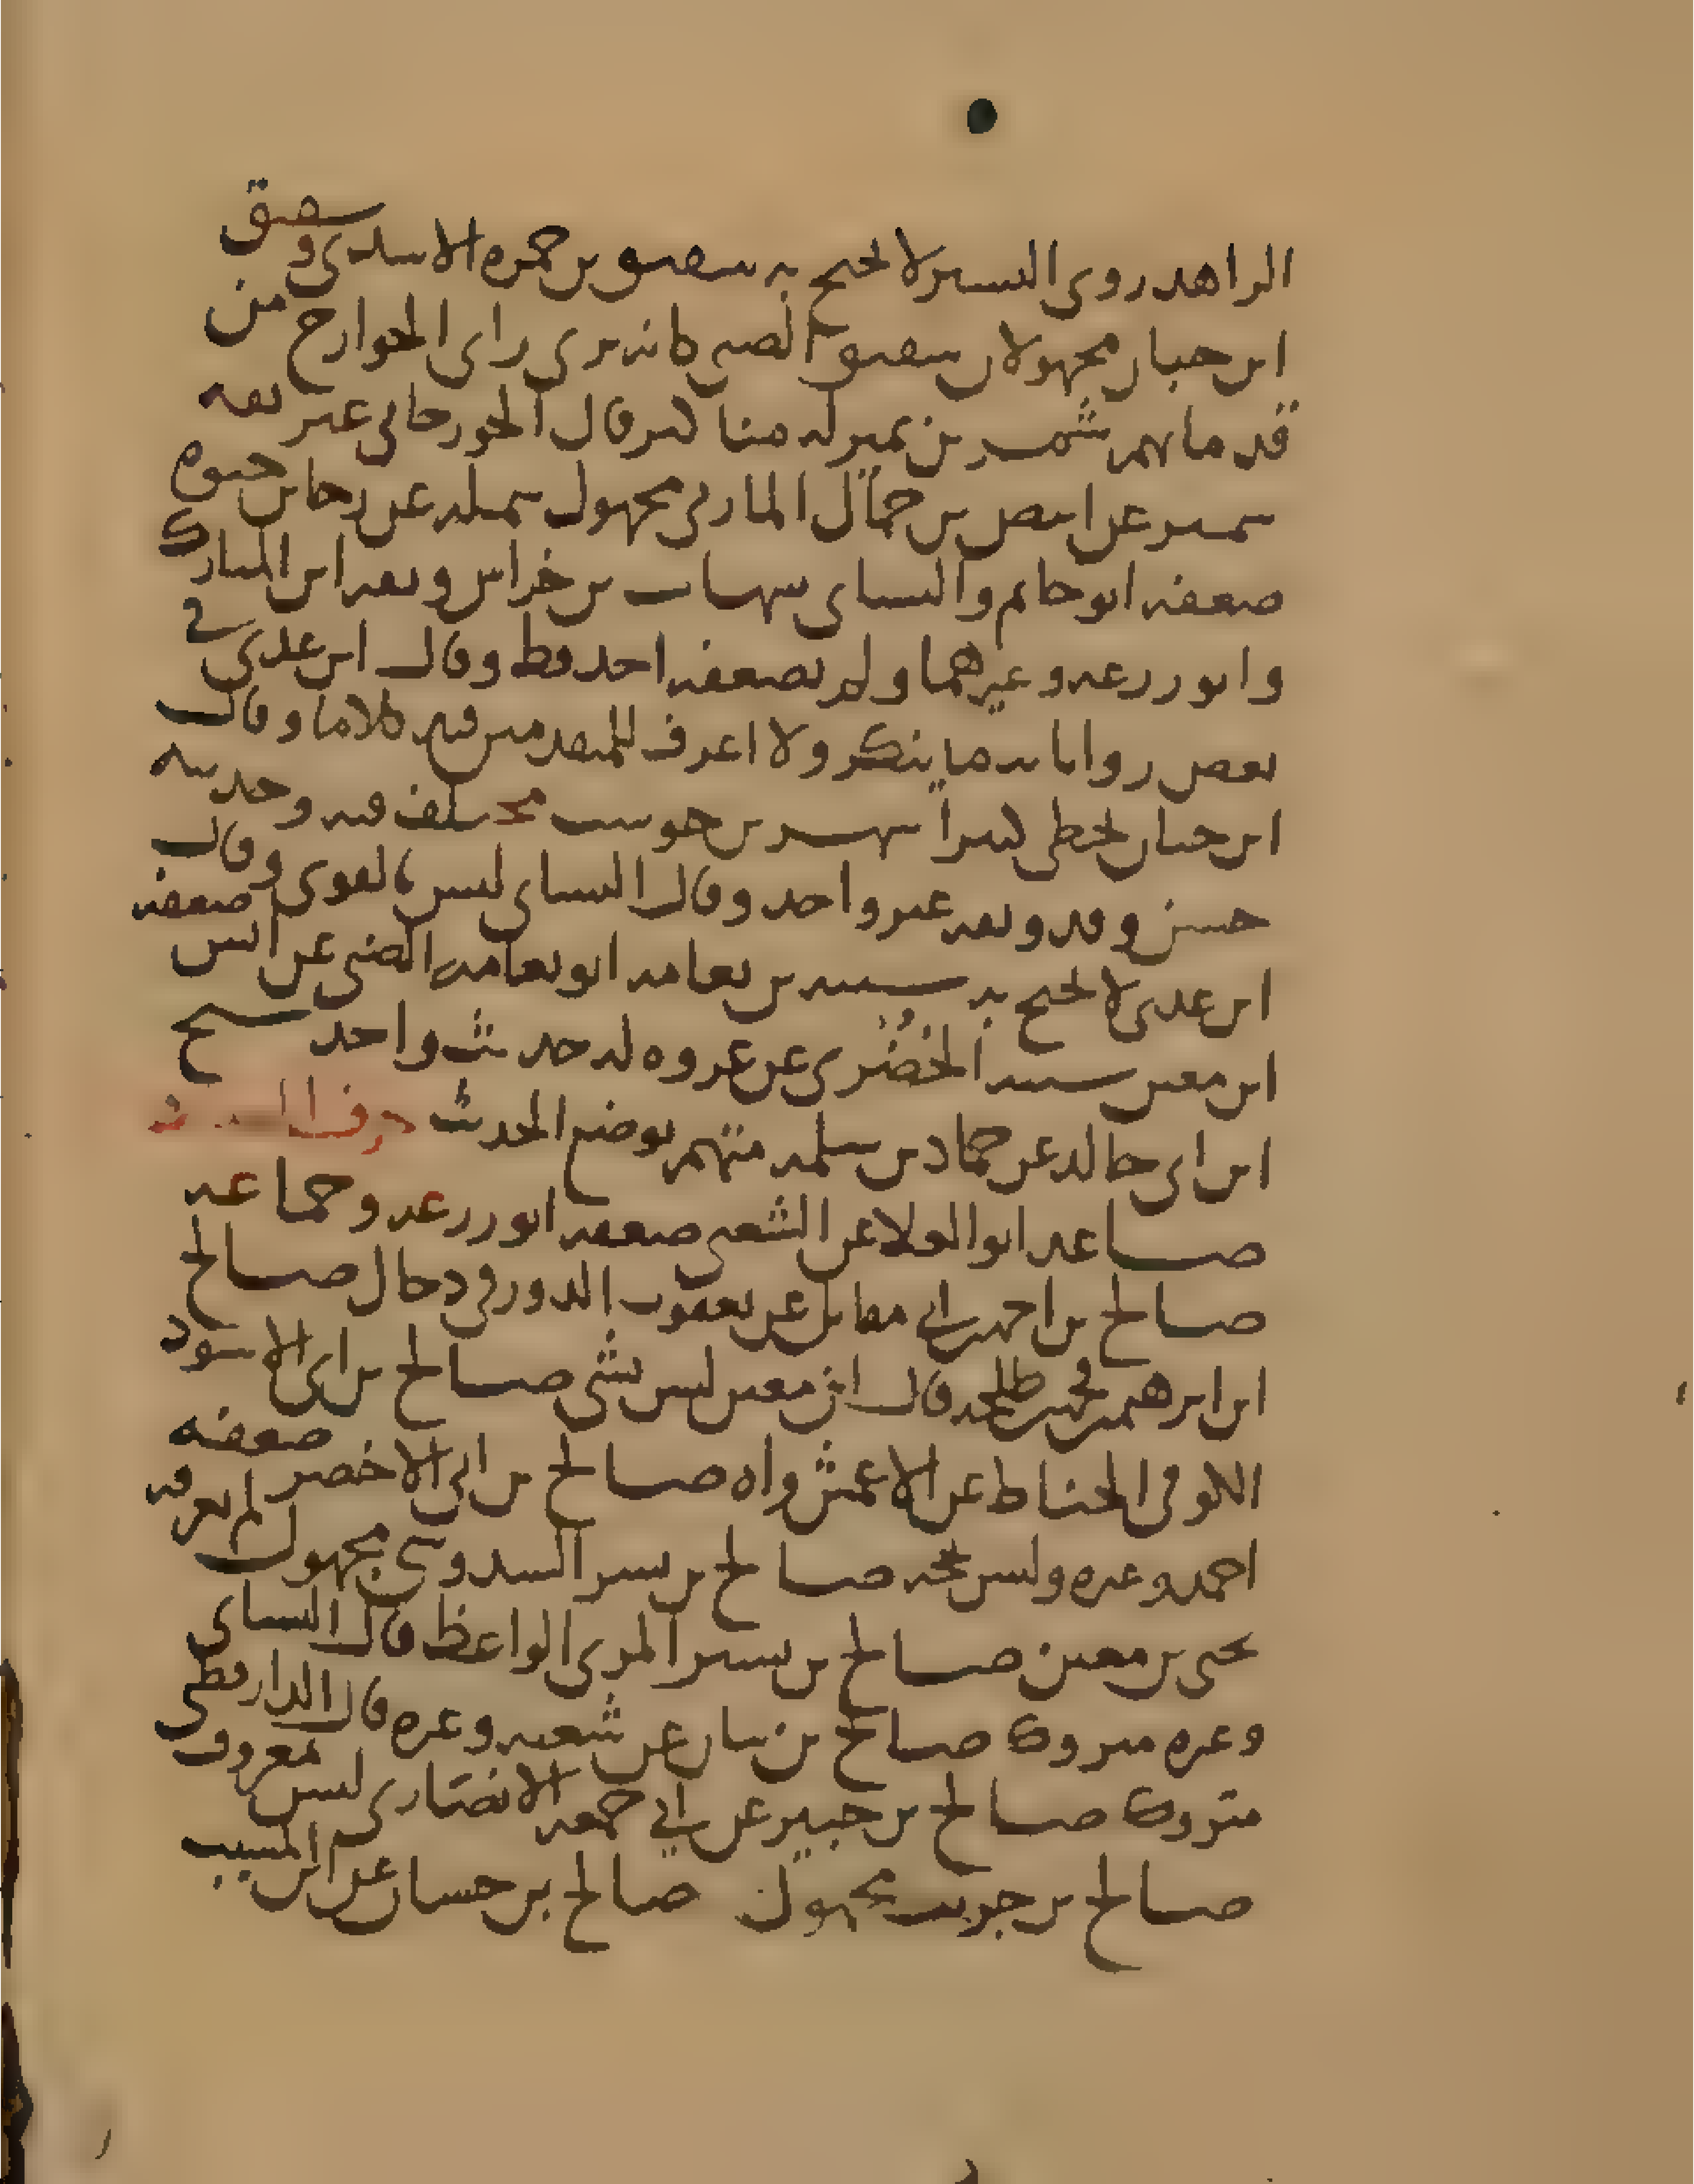 الزاهد روى اليسير لا يحتج به شقيق بن حمزة الاسدي وشقيق
ابن حبان مجهولان شقيق الضبي كان يرى راى الخوارج من
قدمائهم شمر بن نمير له مناكير قال الجوزجاني غير ثقة
سمير عن ابيض بن حمال الماربي مجهول سميلة عن رجا بن حيوة
ضعفه ابو حاتم والنساي شهاب بن خراش وثقه ابن المبارك
وابو زرعة وغيرهما ولم يضعفه احد قط وقال ابن عدي في
بعض رواياته ما ينكر ولا اعرف للمتقدمين فيه كلاما وقال
ابن حبان يخطي كثيرا شهر بن حوشب مختلف فيه وحديثه
حسن وقد وثقه غير واحد وقال النساي ليس بالقوي وقال
ابن عدي لا يحتج به شيبة بن نعامة ابو نعامة الضبي عن انس ضعفه
ابن معين شيبة الخضري عن عروة له حديث واحد شيخ
ابن ابي خالد عن حماد بن سلمة متهم بوضع الحديث حرف الصاد
صاعد ابو العلا عن الشعبي ضعفه ابو زرعة وجماعة
صالح بن احمد بن ابي مقاتل عن يعقوب الدورقي دجال صالح
ابن ابرهيم بن محمد بن طلحة قال ابن معين ليس بشي صالح بن ابي الاسود
الكوفي الحناط عن الاعمش واه صالح بن ابي الاخضر ضعفه
احمد وغيره وليس بحجة صالح بن بسر السدوسي مجهول لم يعرفه
يحيى بن معين صالح بن بشير المري الواعظ قال النساي
وغيره متروك صالح بن بيان عن شعبة وغيره قال الدارقطني
متروك صالح بن جبير عن ابي جمعة الانصاري ليس بمعروف
صالح بن حريث مجهول صالح بن حسان عن ابن المسيب